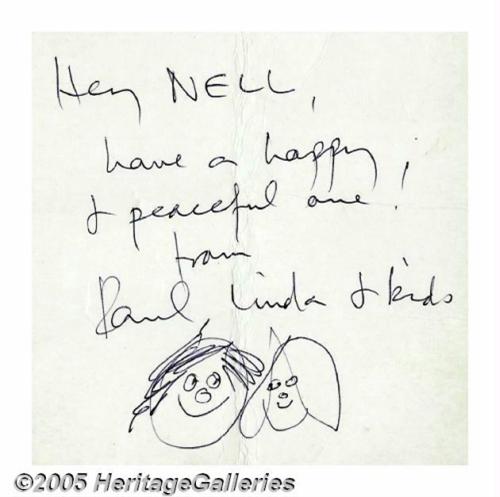 Hey NELL,
have a happy
& peaceful one!
from
Paul, Linda & kids
©2005 HeritageGalleries